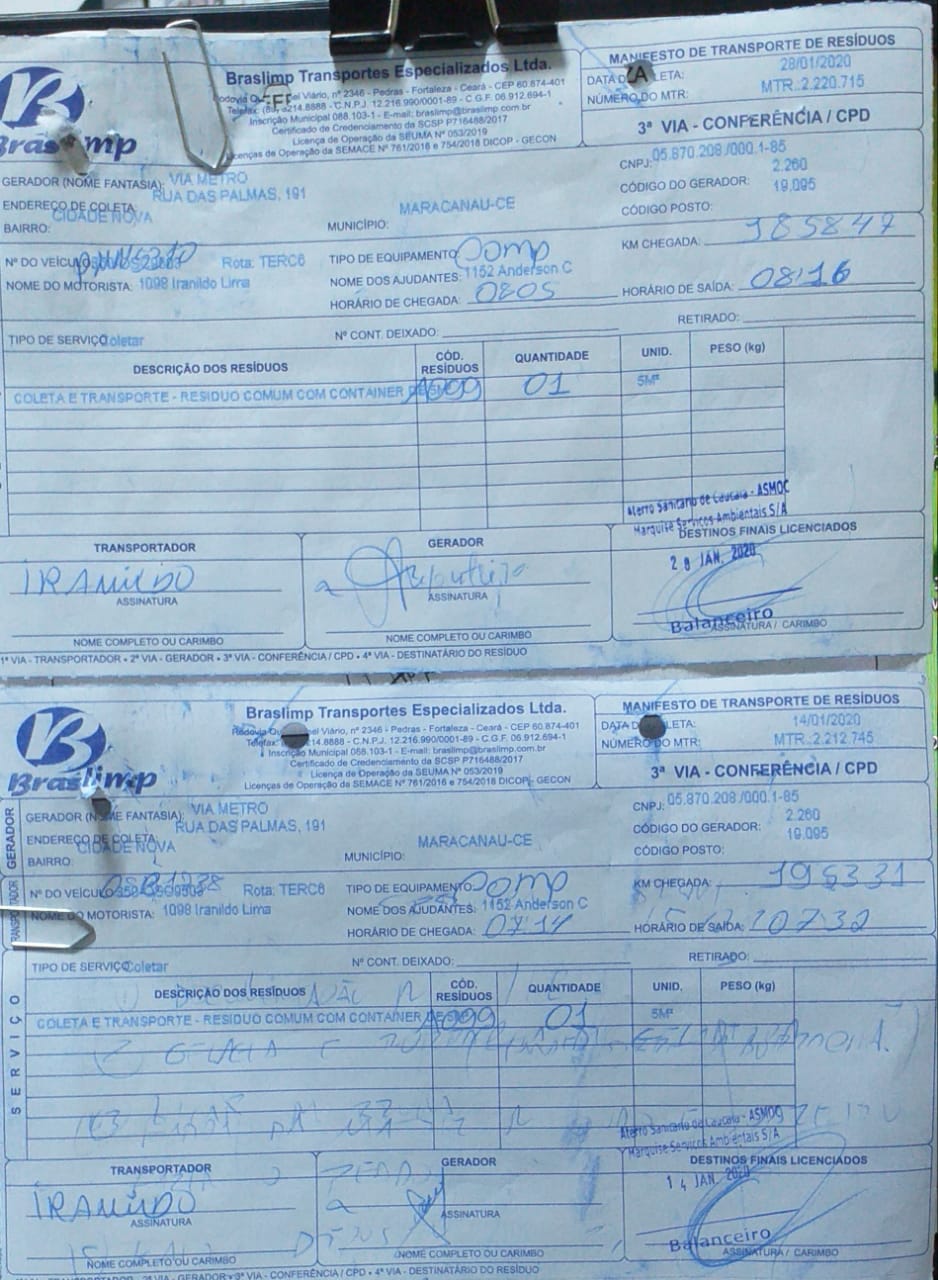 Braslimp
Braslimp Transportes Especializados Ltda.
Viário, nº 2346 - Pedras - Fortaleza - Ceará - CEP 60.874-401
Telefax: 3214.8888 - C.N.P.J. 12.216.990/0001-89 - C.G.F. 06.912.694-1
Inscrição Municipal 088.103-1 - E-mail: braslimp@braslimp.com.br
Certificado de Credenciamento da SCSP P716488/2017
Licença de Operação da SEUMA Nº 053/2019
Licenças de Operação da SEMACE Nº 761/2016 e 754/2018 DICOP - GECON
MANIFESTO DE TRANSPORTE DE RESÍDUOS
DATA DA COLETA: 28/01/2020
NÚMERO DO MTR: MTR.:2.220.715
3ª VIA - CONFERÊNCIA / CPD
GERADOR (NOME FANTASIA): VIA METRO
ENDEREÇO DE COLETA: RUA DAS PALMAS, 191
BAIRRO: CIDADE NOVA
MUNICÍPIO: MARACANAU-CE
CNPJ: 05.870.208/000.1-85
CÓDIGO DO GERADOR: 2.260
CÓDIGO POSTO: 19.095
Nº DO VEÍCULO: Rota: TERC6
NOME DO MOTORISTA: 1098 Iranildo Lima
TIPO DE EQUIPAMENTO: Comp
NOME DOS AJUDANTES: 1152 Anderson C
HORÁRIO DE CHEGADA: 0805
KM CHEGADA: 385847
HORÁRIO DE SAÍDA: 08:16
TIPO DE SERVIÇO: Coletar
Nº CONT. DEIXADO:
RETIRADO:
DESCRIÇÃO DOS RESÍDUOS CÓD. RESÍDUOS QUANTIDADE UNID. PESO (kg)
COLETA E TRANSPORTE - RESIDUO COMUM COM CONTAINER A099 01 5M³
Aterro Sanitario de Caucaia - ASMOC
Marquise Serviços Ambientais S/A
TRANSPORTADOR GERADOR DESTINOS FINAIS LICENCIADOS
28 JAN. 2020
IRANILDO
Balanceiro
ASSINATURA ASSINATURA ASSINATURA / CARIMBO
NOME COMPLETO OU CARIMBO NOME COMPLETO OU CARIMBO
1ª VIA - TRANSPORTADOR • 2ª VIA - GERADOR • 3ª VIA - CONFERÊNCIA / CPD • 4ª VIA - DESTINATÁRIO DO RESÍDUO
Braslimp
Braslimp Transportes Especializados Ltda.
Viário, nº 2346 - Pedras - Fortaleza - Ceará - CEP 60.874-401
Telefax: 3214.8888 - C.N.P.J. 12.216.990/0001-89 - C.G.F. 06.912.694-1
Inscrição Municipal 088.103-1 - E-mail: braslimp@braslimp.com.br
Certificado de Credenciamento da SCSP P716488/2017
Licença de Operação da SEUMA Nº 053/2019
Licenças de Operação da SEMACE Nº 761/2016 e 754/2018 DICOP - GECON
MANIFESTO DE TRANSPORTE DE RESÍDUOS
DATA DA COLETA: 14/01/2020
NÚMERO DO MTR: MTR.:2.212.745
3ª VIA - CONFERÊNCIA / CPD
GERADOR
GERADOR (NOME FANTASIA): VIA METRO
ENDEREÇO DE COLETA: RUA DAS PALMAS, 191
BAIRRO: CIDADE NOVA
MUNICÍPIO: MARACANAU-CE
CNPJ: 05.870.208/000.1-85
CÓDIGO DO GERADOR: 2.260
CÓDIGO POSTO: 19.095
Nº DO VEÍCULO: Rota: TERC6
NOME DO MOTORISTA: 1098 Iranildo Lima
TIPO DE EQUIPAMENTO: Comp
NOME DOS AJUDANTES: 1152 Anderson C
HORÁRIO DE CHEGADA: 0714
KM CHEGADA: 195331
HORÁRIO DE SAÍDA: 0732
TIPO DE SERVIÇO: Coletar
Nº CONT. DEIXADO:
RETIRADO:
SERVIÇO
DESCRIÇÃO DOS RESÍDUOS CÓD. RESÍDUOS QUANTIDADE UNID. PESO (kg)
COLETA E TRANSPORTE - RESIDUO COMUM COM CONTAINER A099 01 5M³
Aterro Sanitario de Caucaia - ASMOC
Marquise Serviços Ambientais S/A
TRANSPORTADOR GERADOR DESTINOS FINAIS LICENCIADOS
14 JAN. 2020
IRANILDO
Balanceiro
ASSINATURA ASSINATURA ASSINATURA / CARIMBO
NOME COMPLETO OU CARIMBO NOME COMPLETO OU CARIMBO
2ª VIA - GERADOR • 3ª VIA - CONFERÊNCIA / CPD • 4ª VIA - DESTINATÁRIO DO RESÍDUO